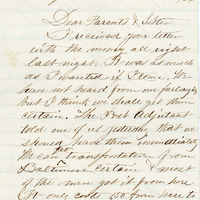 Dear Parents & Sister
I received your letter
with the money all right
last night. It was as much
as I wanted if I come. We
have not heard from our furloughs
but I think we shall get them
certain. The Post Adjutant
told one of us yesterday that we
should have them immediately
We can get transportation from
Baltimore certain & most
of the men got it from here
It only costs $1.50 from here to